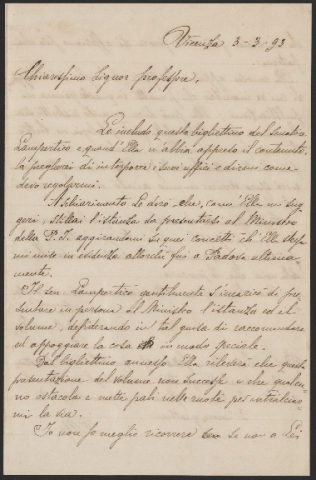 Vicenza 3-3-93
Chiarissimo Signor professore.
Le includo questo bigliettino del senatore
Lampertico e quand' Ella n'abbia appreso il contenuto,
la pregherei di interporre i suoi uffici e dirmi come
devo regolarmi.
A schiarimento Le dirò che, com' Ella mi sug
gerì, stillai l'istanza da presentarsi al Ministro
della P. I. aggirandomi su quei concetti ch' Ella stessa
mi mise in evidenza allorchè fui a Padova ultima-
mente.
Il sen. Lampertico gentilmente s'incaricò di pre
sentare in persona al Ministro l'istanza ed il
volume, desiderando in tal guisa di raccomandare
ed appoggiare la cosa in modo speciale.
Dal bigliettino annesso Ella rileverà che questa
presentazione del volume non successe e che qualcu
no ostacola e mette pali nelle ruote per attraversar
mi la via.
Io non so meglio ricorrere se non a Lei